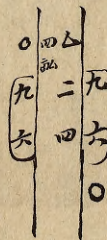 九六〇
二四
四
〇九六